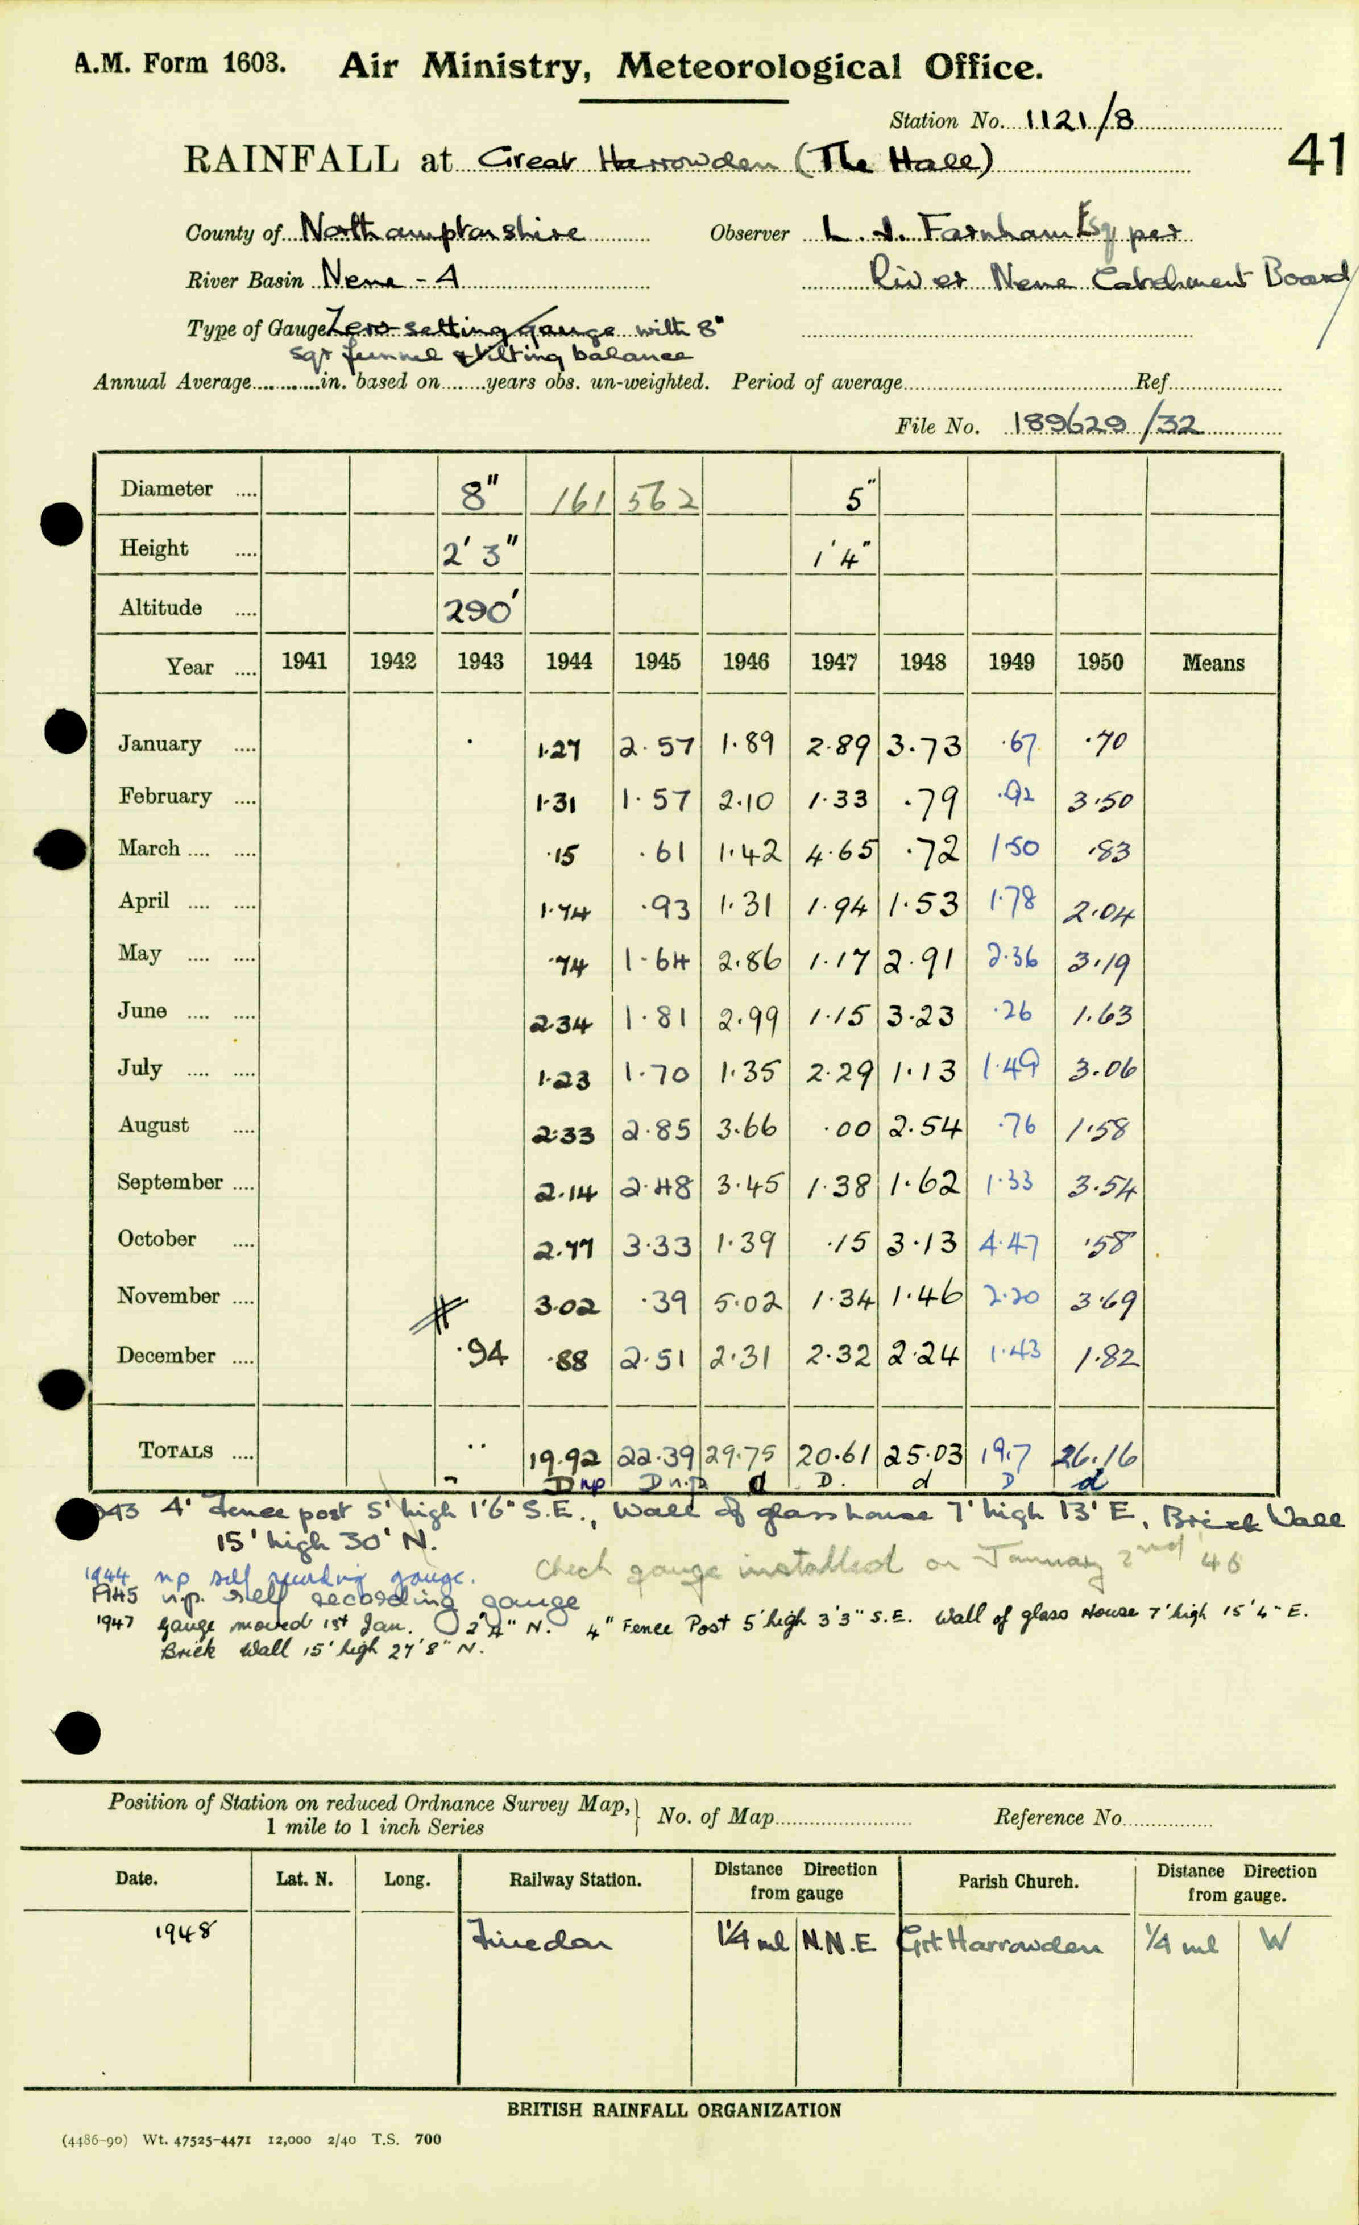 A.M. Form 1603. Air Ministry, Meteorological Office.
Station No. 1121/8
41
RAINFALL at Great Harrowden (The Hall)
County of Northamptonshire Observer L. J. Farnham Esq per
River Basin Nene - A River Nene Catchment Board
Type of Gauge Zero setting gauge with 8"
sqr funnel & tilting balance
Annual Average............in. based on.......years obs. un-weighted. Period of average.......... Ref..........
File No. 189629/32
Diameter .... 8" 161 562 5"
Height .... 2' 3" 1' 4"
Altitude .... 290'
Year .... 1941 1942 1943 1944 1945 1946 1947 1948 1949 1950 Means
January .... . 1.27 2.57 1.89 2.89 3.73 .67 .70
February .... 1.31 1.57 2.10 1.33 .79 .92 3.50
March .... .... .15 .61 1.42 4.65 .72 1.50 .83
April .... .... 1.74 .93 1.31 1.94 1.53 1.78 2.04
May .... .... .74 1.64 2.86 1.17 2.91 2.36 3.19
June .... .... 2.34 1.81 2.99 1.15 3.23 .26 1.63
July .... .... 1.23 1.70 1.35 2.29 1.13 1.49 3.06
August .... 2.33 2.85 3.66 .00 2.54 .76 1.58
September .... 2.14 2.48 3.45 1.38 1.62 1.33 3.54
October .... 2.77 3.33 1.39 .15 3.13 4.47 .58
November .... 3.02 .39 5.02 1.34 1.46 2.20 3.69
December .... .94 .88 2.51 2.31 2.32 2.24 1.43 1.82
TOTALS .... .. 19.92 22.39 29.75 20.61 25.03 19.17 26.16
D np D n.p. d D. d D d
1943 4" Fence post 5' high 1'6" S.E., Wall of glass house 7' high 13' E, Brick Wall
15' high 30' N.
1944 np self recording gauge. Check gauge installed on January 2nd '46
1945 n.p. self recording gauge
1947 Gauge moved 1st Jan. 2'4" N. 4" Fence Post 5' high 3'3" S.E. Wall of glass House 7' high 15'4" E.
Brick Wall 15' high 27'8" N.
Position of Station on reduced Ordnance Survey Map, No. of Map.......... Reference No..........
1 mile to 1 inch Series
Date. Lat. N. Long. Railway Station. Distance Direction from gauge Parish Church. Distance Direction from gauge.
1948 Finedon 1¼ ml N.N.E Grt Harrowden ¼ ml W
BRITISH RAINFALL ORGANIZATION
(4486-90) Wt. 47525-4471 12,000 2/40 T.S. 700